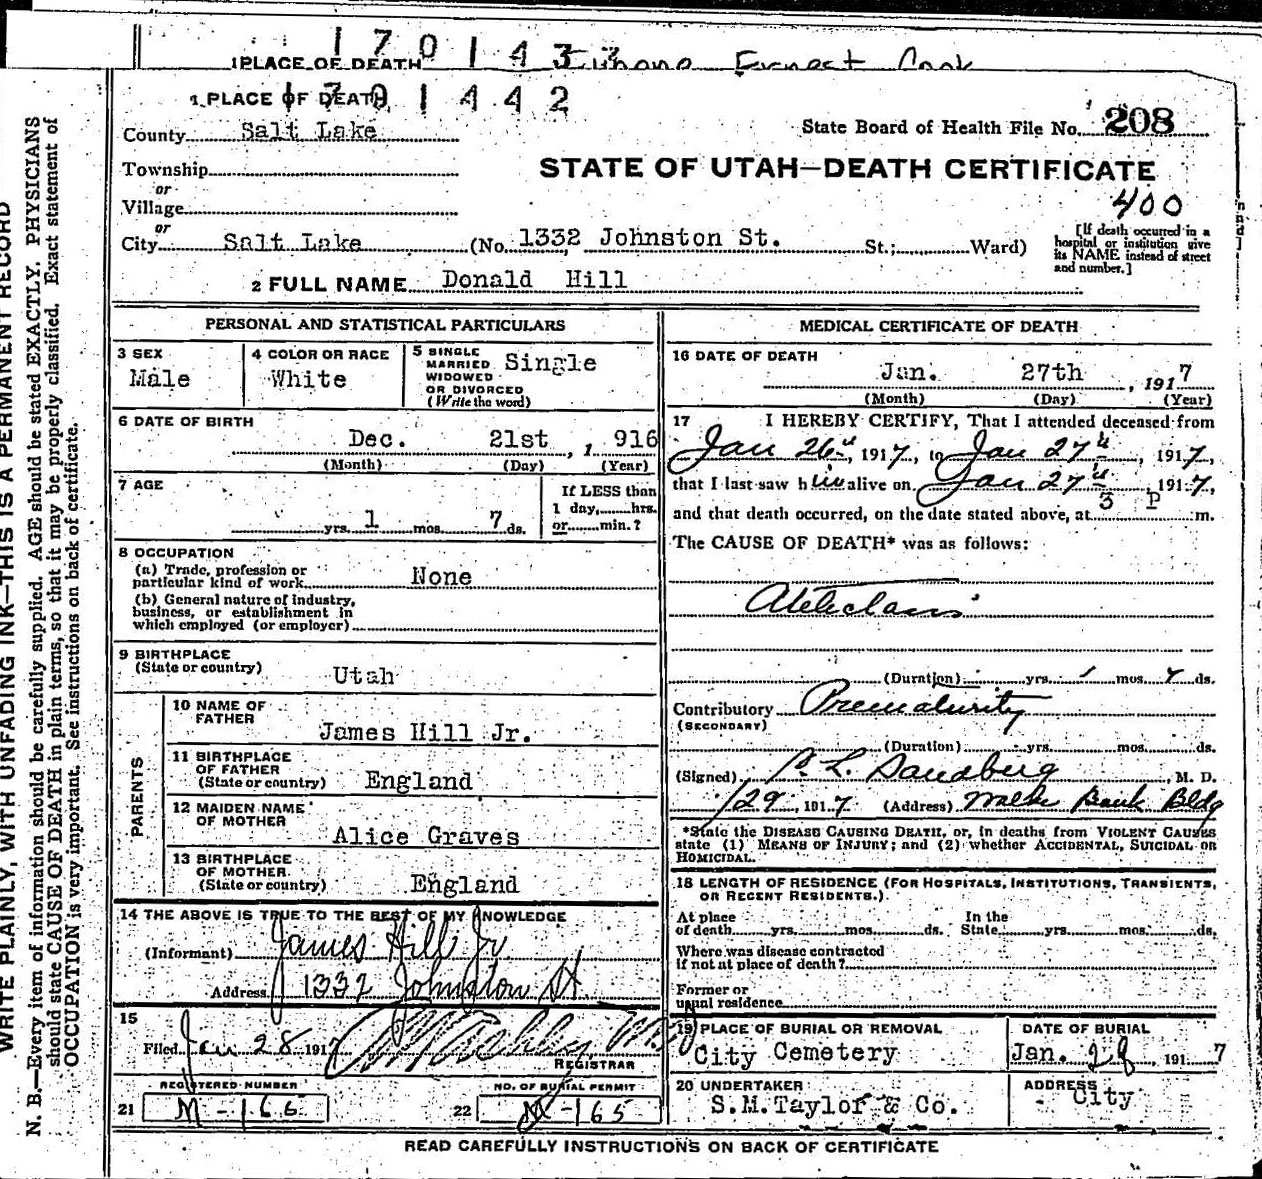 170143
1 PLACE OF DEATH Ernest Cook
170442
1 PLACE OF DEATH
County Salt Lake
State Board of Health File No. 208
STATE OF UTAH—DEATH CERTIFICATE
Township
or
Village
400
or
City Salt Lake (No. 1332 Johnston St. St.; Ward)
[If death occurred in a
hospital or institution give
its NAME instead of street
and number.]
2 FULL NAME Donald Hill
PERSONAL AND STATISTICAL PARTICULARS
3 SEX
Male
4 COLOR OR RACE
White
5 SINGLE
MARRIED
WIDOWED
OR DIVORCED
(Write the word)
Single
6 DATE OF BIRTH
Dec. 21st , 1 916
(Month) (Day) (Year)
7 AGE
yrs. 1 mos. 7 ds.
If LESS than
1 day, hrs.
or min.?
8 OCCUPATION
(a) Trade, profession or
particular kind of work None
(b) General nature of industry,
business, or establishment in
which employed (or employer)
9 BIRTHPLACE
(State or country) Utah
PARENTS
10 NAME OF
FATHER
James Hill Jr.
11 BIRTHPLACE
OF FATHER
(State or country) England
12 MAIDEN NAME
OF MOTHER
Alice Graves
13 BIRTHPLACE
OF MOTHER
(State or country) England
14 THE ABOVE IS TRUE TO THE BEST OF MY KNOWLEDGE
(Informant) James Hill Jr
Address 1332 Johnston St.
15
Filed Jan 28 1917
REGISTRAR
REGISTERED NUMBER
21 M-166
NO. OF BURIAL PERMIT
22 M-165
MEDICAL CERTIFICATE OF DEATH
16 DATE OF DEATH
Jan. 27th , 1917
(Month) (Day) (Year)
17 I HEREBY CERTIFY, That I attended deceased from
Jan 26th, 1917, to Jan 27th, 1917,
that I last saw him alive on Jan 27th, 1917,
and that death occurred, on the date stated above, at 3 P m.
The CAUSE OF DEATH* was as follows:
(Duration) yrs. 1 mos. 7 ds.
Contributory Prematurity
(SECONDARY)
(Duration) yrs. mos. ds.
(Signed) L. Sandberg, M. D.
1/29, 1917 (Address) Bank Bldg
*State the DISEASE CAUSING DEATH, or, in deaths from VIOLENT CAUSES
state (1) MEANS OF INJURY; and (2) whether ACCIDENTAL, SUICIDAL OR
HOMICIDAL.
18 LENGTH OF RESIDENCE (FOR HOSPITALS, INSTITUTIONS, TRANSIENTS,
OR RECENT RESIDENTS.)
At place
of death yrs. mos. ds.
In the
State yrs. mos. ds.
Where was disease contracted
if not at place of death?
Former or
usual residence
19 PLACE OF BURIAL OR REMOVAL
City Cemetery
DATE OF BURIAL
Jan. 28, 1917
20 UNDERTAKER
S.M.Taylor & Co.
ADDRESS
City
READ CAREFULLY INSTRUCTIONS ON BACK OF CERTIFICATE
WRITE PLAINLY, WITH UNFADING INK—THIS IS A PERMANENT RECORD
N. B.—Every item of information should be carefully supplied. AGE should be stated EXACTLY. PHYSICIANS
should state CAUSE OF DEATH in plain terms, so that it may be properly classified. Exact statement of
OCCUPATION is very important. See instructions on back of certificate.